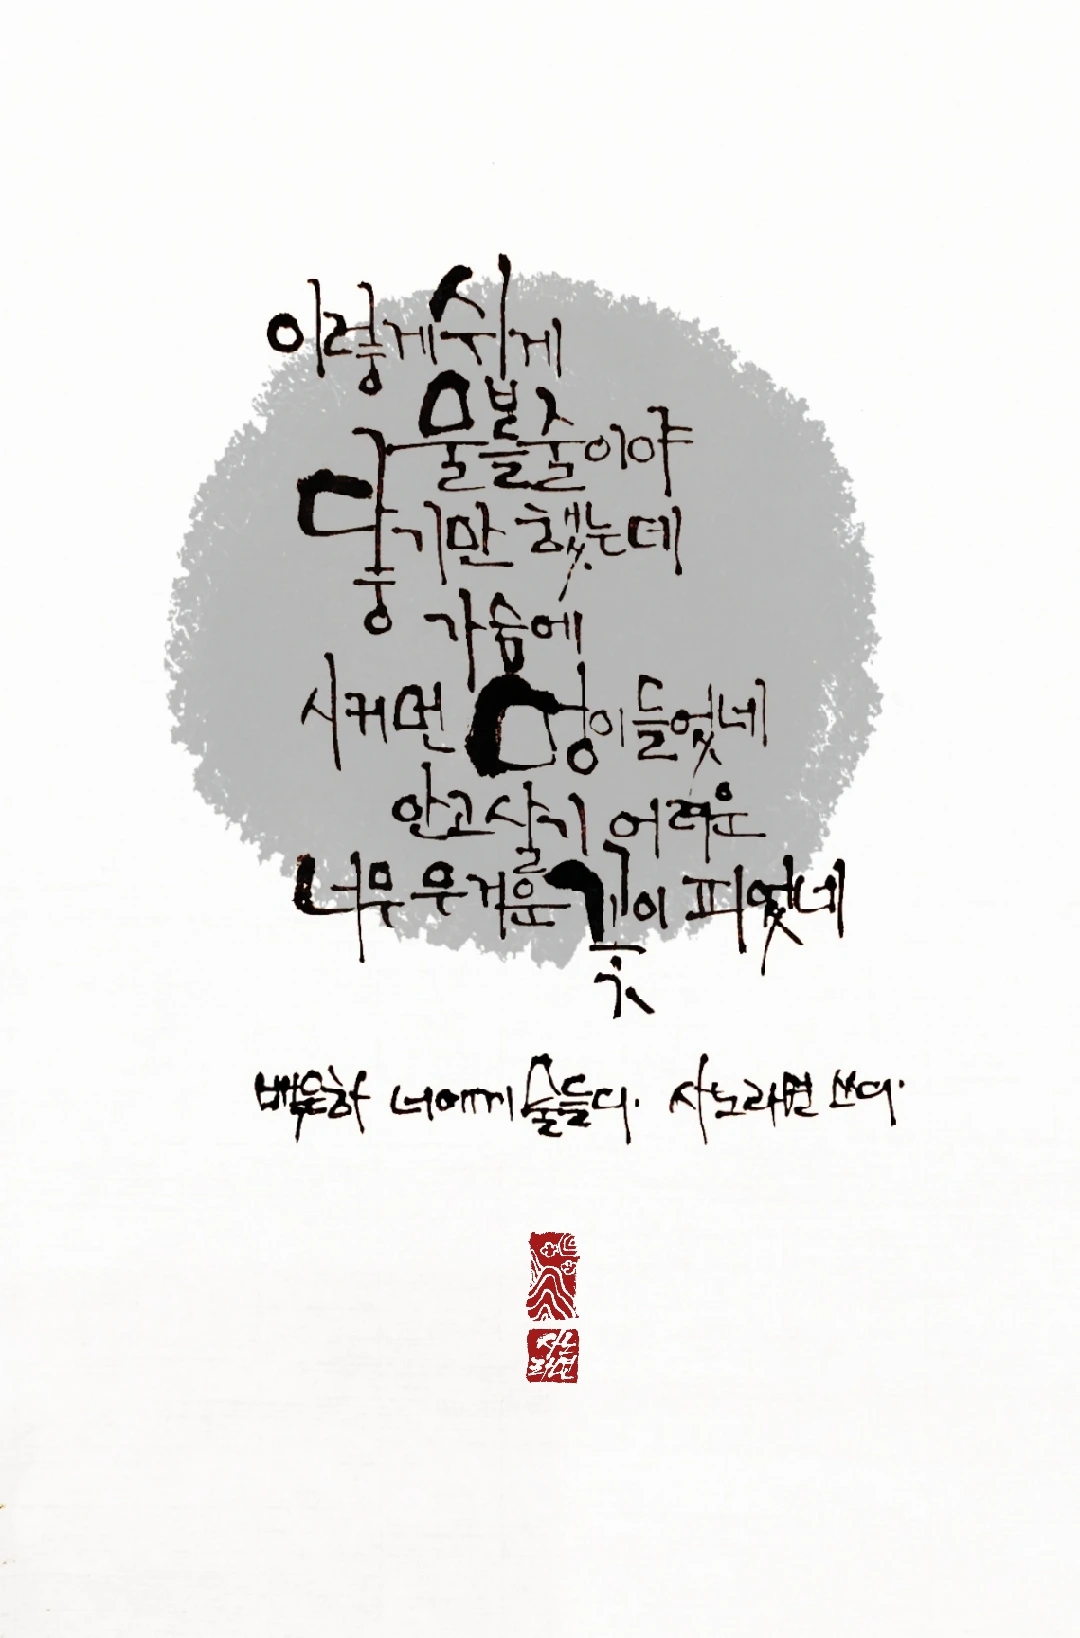 이렇게 쉽게
물들 줄이야
닿기만 했는데
가슴에
시커먼 멍이 들었네
안고 살기 어려운
너무 무거운 꽃이 피었네
너에게 물들다. 사노라면 쓰다.
사노
라면